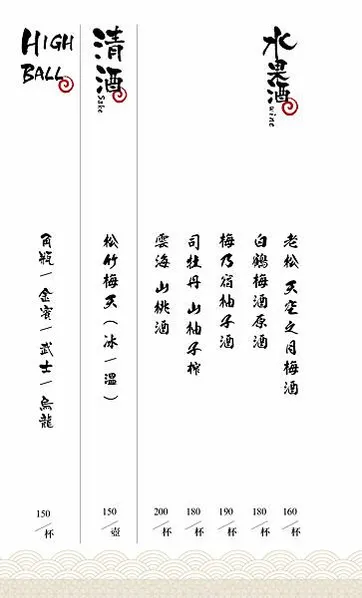 水果酒
wine
老松 天空之月梅酒
160/杯
白鶴梅酒原酒
180/杯
梅乃宿柚子酒
190/杯
司牡丹 山柚子搾
180/杯
雲海 山桃酒
200/杯
清酒
Sake
松竹梅天(冰/溫)
150/壺
HIGH
BALL
角瓶/金賓/武士/烏龍
150/杯